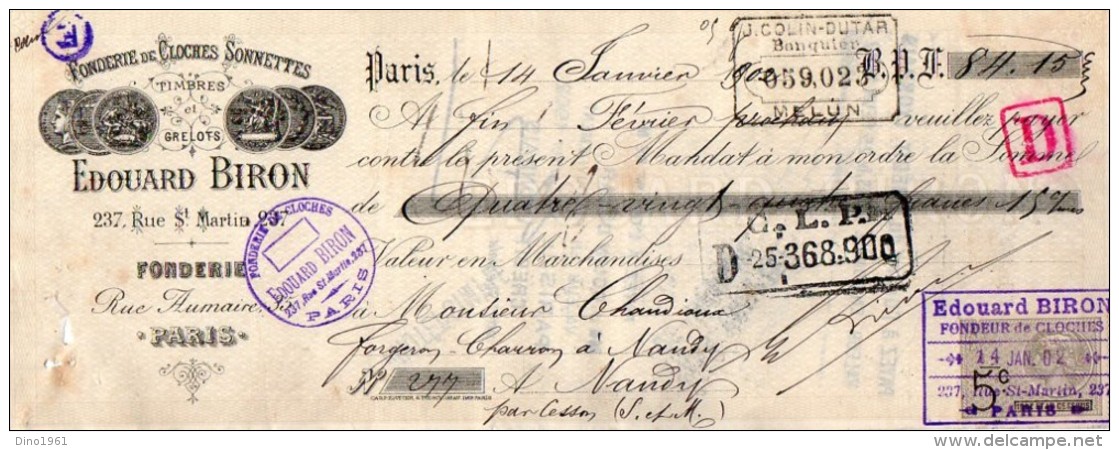 FONDERIE DE CLOCHES SONNETTES
TIMBRES
et
GRELOTS
EDOUARD BIRON
237, Rue St Martin, 237
FONDERIE
Rue Aumaire, 35
PARIS
J. COLIN-DUTAR
Banquier
059,023
MELUN
Paris, le 14 Janvier 190 B.P.F. 84.15
Au fin Février prochain veuillez payer
contre le présent Mandat à mon ordre la Somme
de Quatre-vingt quatre francs 15
Valeur en Marchandises
C. L. P.
D 25-368.900
D
à Monsieur Chandioux
Forgeron-Charron à Nandy
No 277 A Nandy
par Cesson (S. et M.)
FONDERIE de CLOCHES
EDOUARD BIRON
237, Rue St-Martin, 237
PARIS
Edouard BIRON
FONDEUR de CLOCHES
14 JAN. 02
5c
237, Rue St-Martin, 237
PARIS
Dino1961